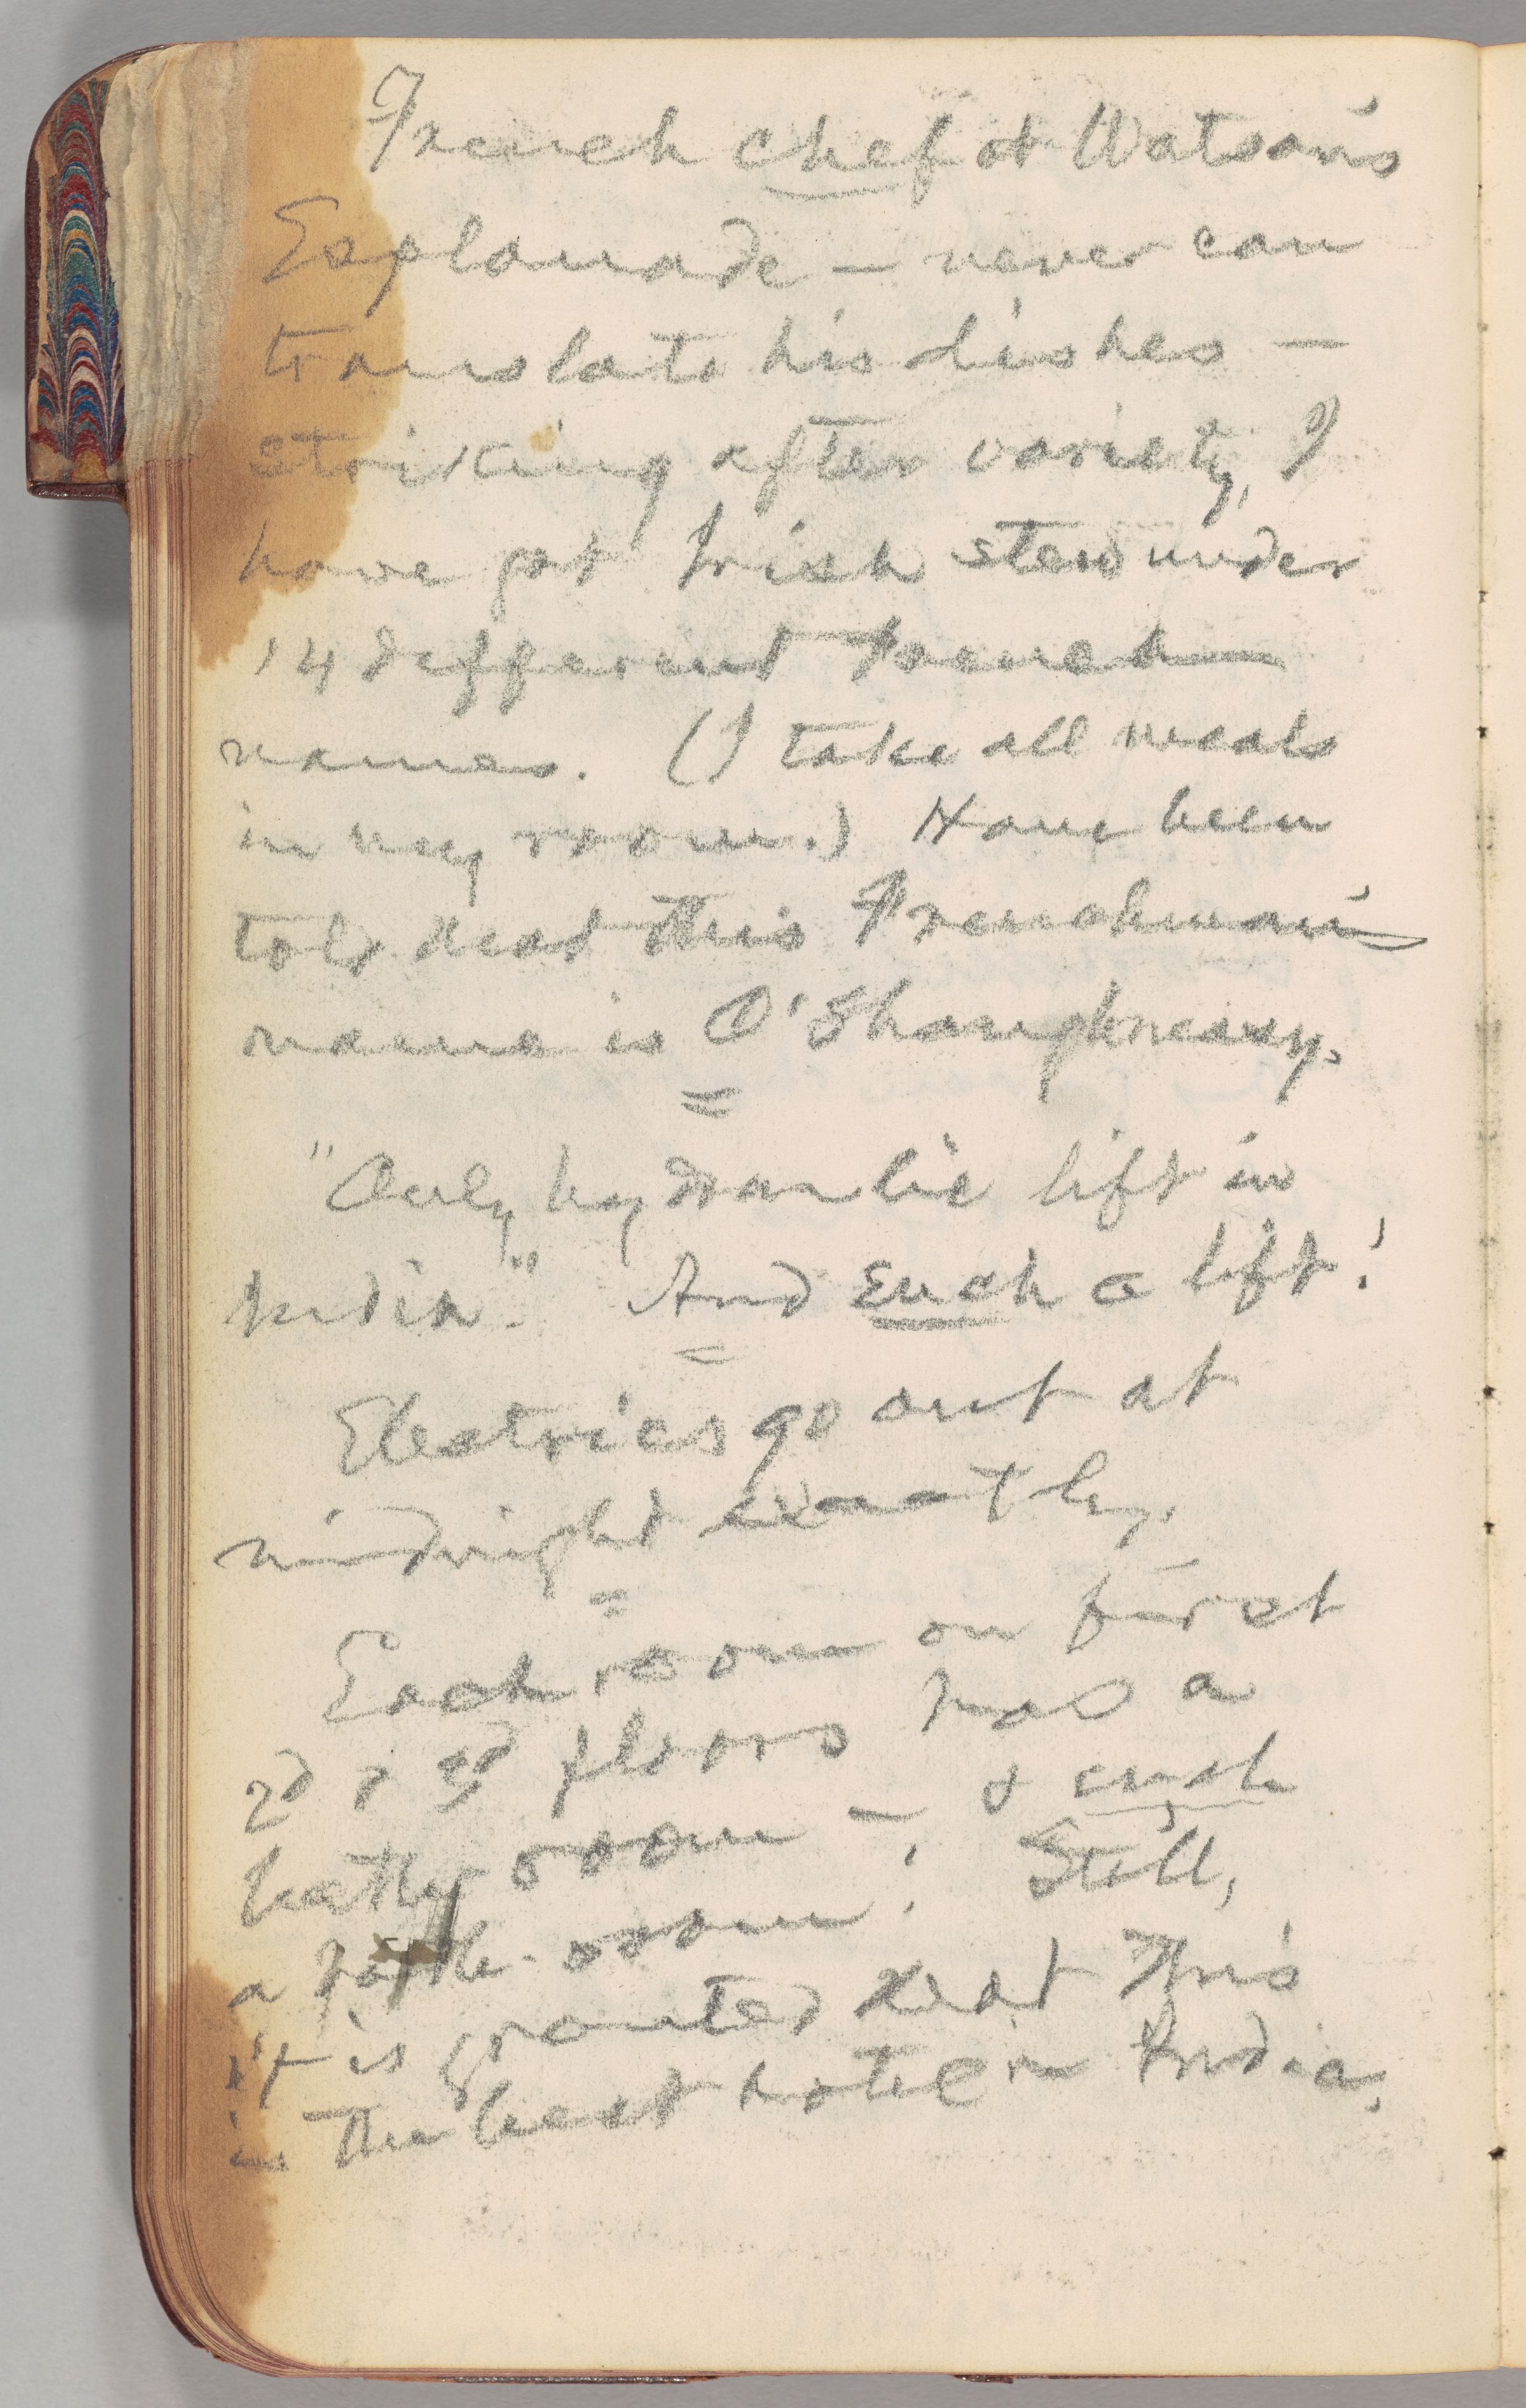 French chef at Watson's
Esplanade — never can
translate his dishes —
striking after variety, I
have got Irish stew under
14 different French
names. (I take all meals
in my room.) Have been
told that this Frenchman's
name is O'Shaughnessy.
=
"Only hydraulic lift in
India." And such a lift!
=
Electrics go out at
midnight exactly.
=
Each room on first
2d & 3d floors has a
bath room —, & such
a bath-room! Still,
it is granted that this
is the best hotel in India,